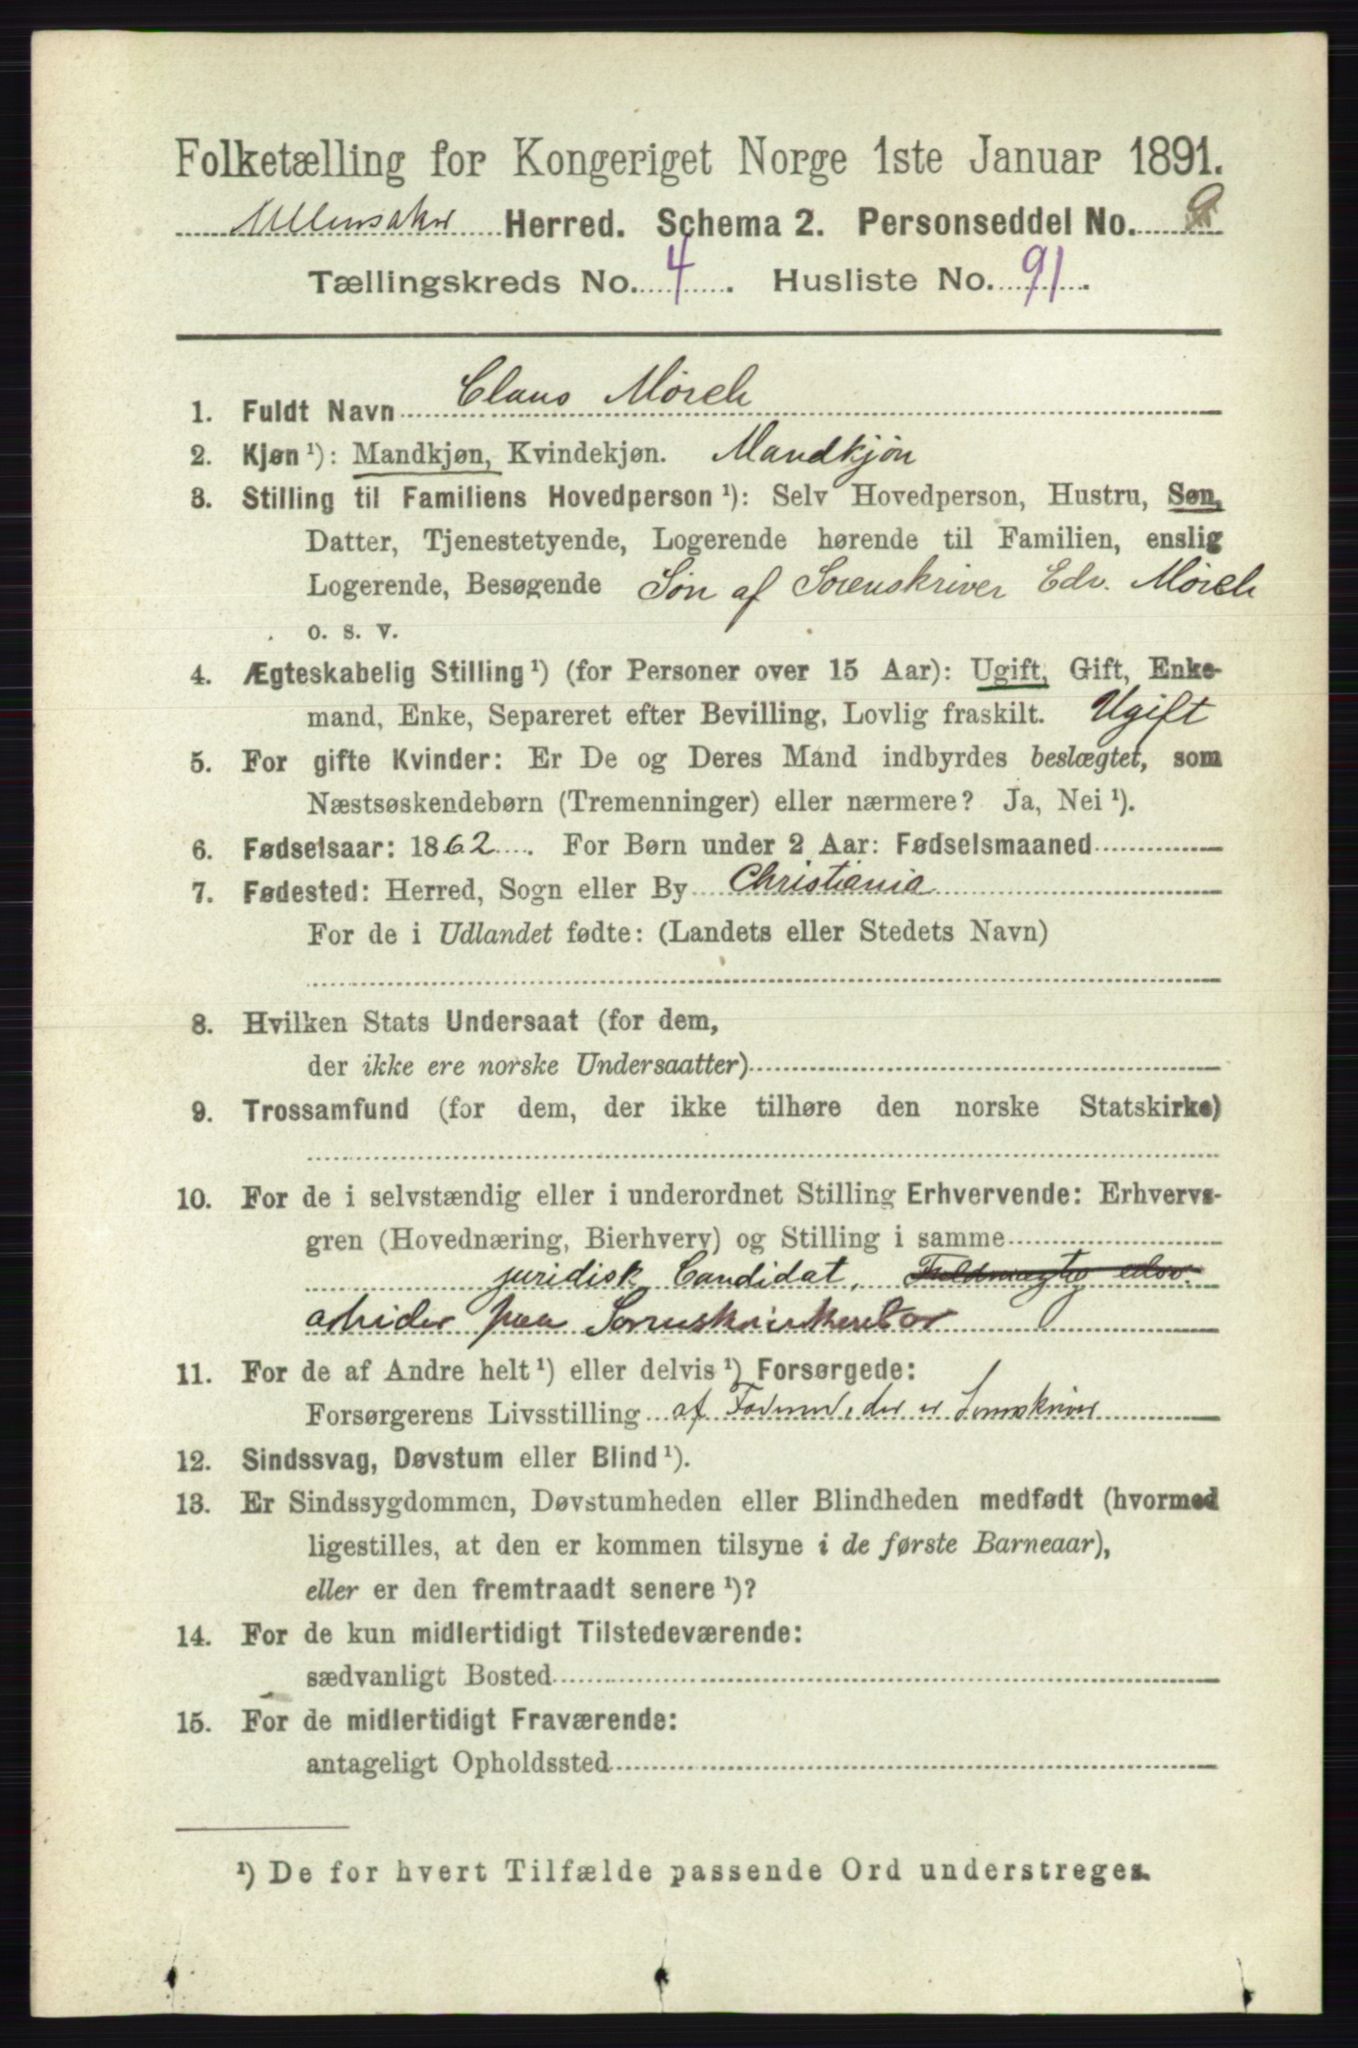 Folketælling for Kongeriget Norge 1ste Januar 1891.
Ullensaker Herred. Schema 2. Personseddel No. 9
Tællingskreds No. 4. Husliste No. 91.
1. Fuldt Navn Claus Mörch
2. Kjøn¹): Mandkjøn, Kvindekjøn. Mandkjön
3. Stilling til Familiens Hovedperson¹): Selv Hovedperson, Hustru, Søn,
Datter, Tjenestetyende, Logerende hørende til Familien, enslig
Logerende, Besøgende Sön af Sorenskriver Edv. Mörch
o. s. v.
4. Ægteskabelig Stilling¹) (for Personer over 15 Aar): Ugift, Gift, Enke-
mand, Enke, Separeret efter Bevilling, Lovlig fraskilt. Ugift
5. For gifte Kvinder: Er De og Deres Mand indbyrdes beslægtet, som
Næstsøskendebørn (Tremenninger) eller nærmere? Ja, Nei¹).
6. Fødselsaar: 1862. For Børn under 2 Aar: Fødselsmaaned
7. Fødested: Herred, Sogn eller By Christiania
For de i Udlandet fødte: (Landets eller Stedets Navn)
8. Hvilken Stats Undersaat (for dem,
der ikke ere norske Undersaatter)
9. Trossamfund (for dem, der ikke tilhøre den norske Statskirke)
10. For de i selvstændig eller i underordnet Stilling Erhvervende: Erhvervs-
gren (Hovednæring, Bierhverv) og Stilling i samme
juridisk Candidat, Fuldmægtig
arbider paa Sorenskriverkontor
11. For de af Andre helt¹) eller delvis¹) Forsørgede:
Forsørgerens Livsstilling af Faderen, der er Sorenskriver
12. Sindssvag, Døvstum eller Blind¹).
13. Er Sindssygdommen, Døvstumheden eller Blindheden medfødt (hvormed
ligestilles, at den er kommen tilsyne i de første Barneaar),
eller er den fremtraadt senere¹)?
14. For de kun midlertidigt Tilstedeværende:
sædvanligt Bosted
15. For de midlertidigt Fraværende:
antageligt Opholdssted
¹) De for hvert Tilfælde passende Ord understreges.